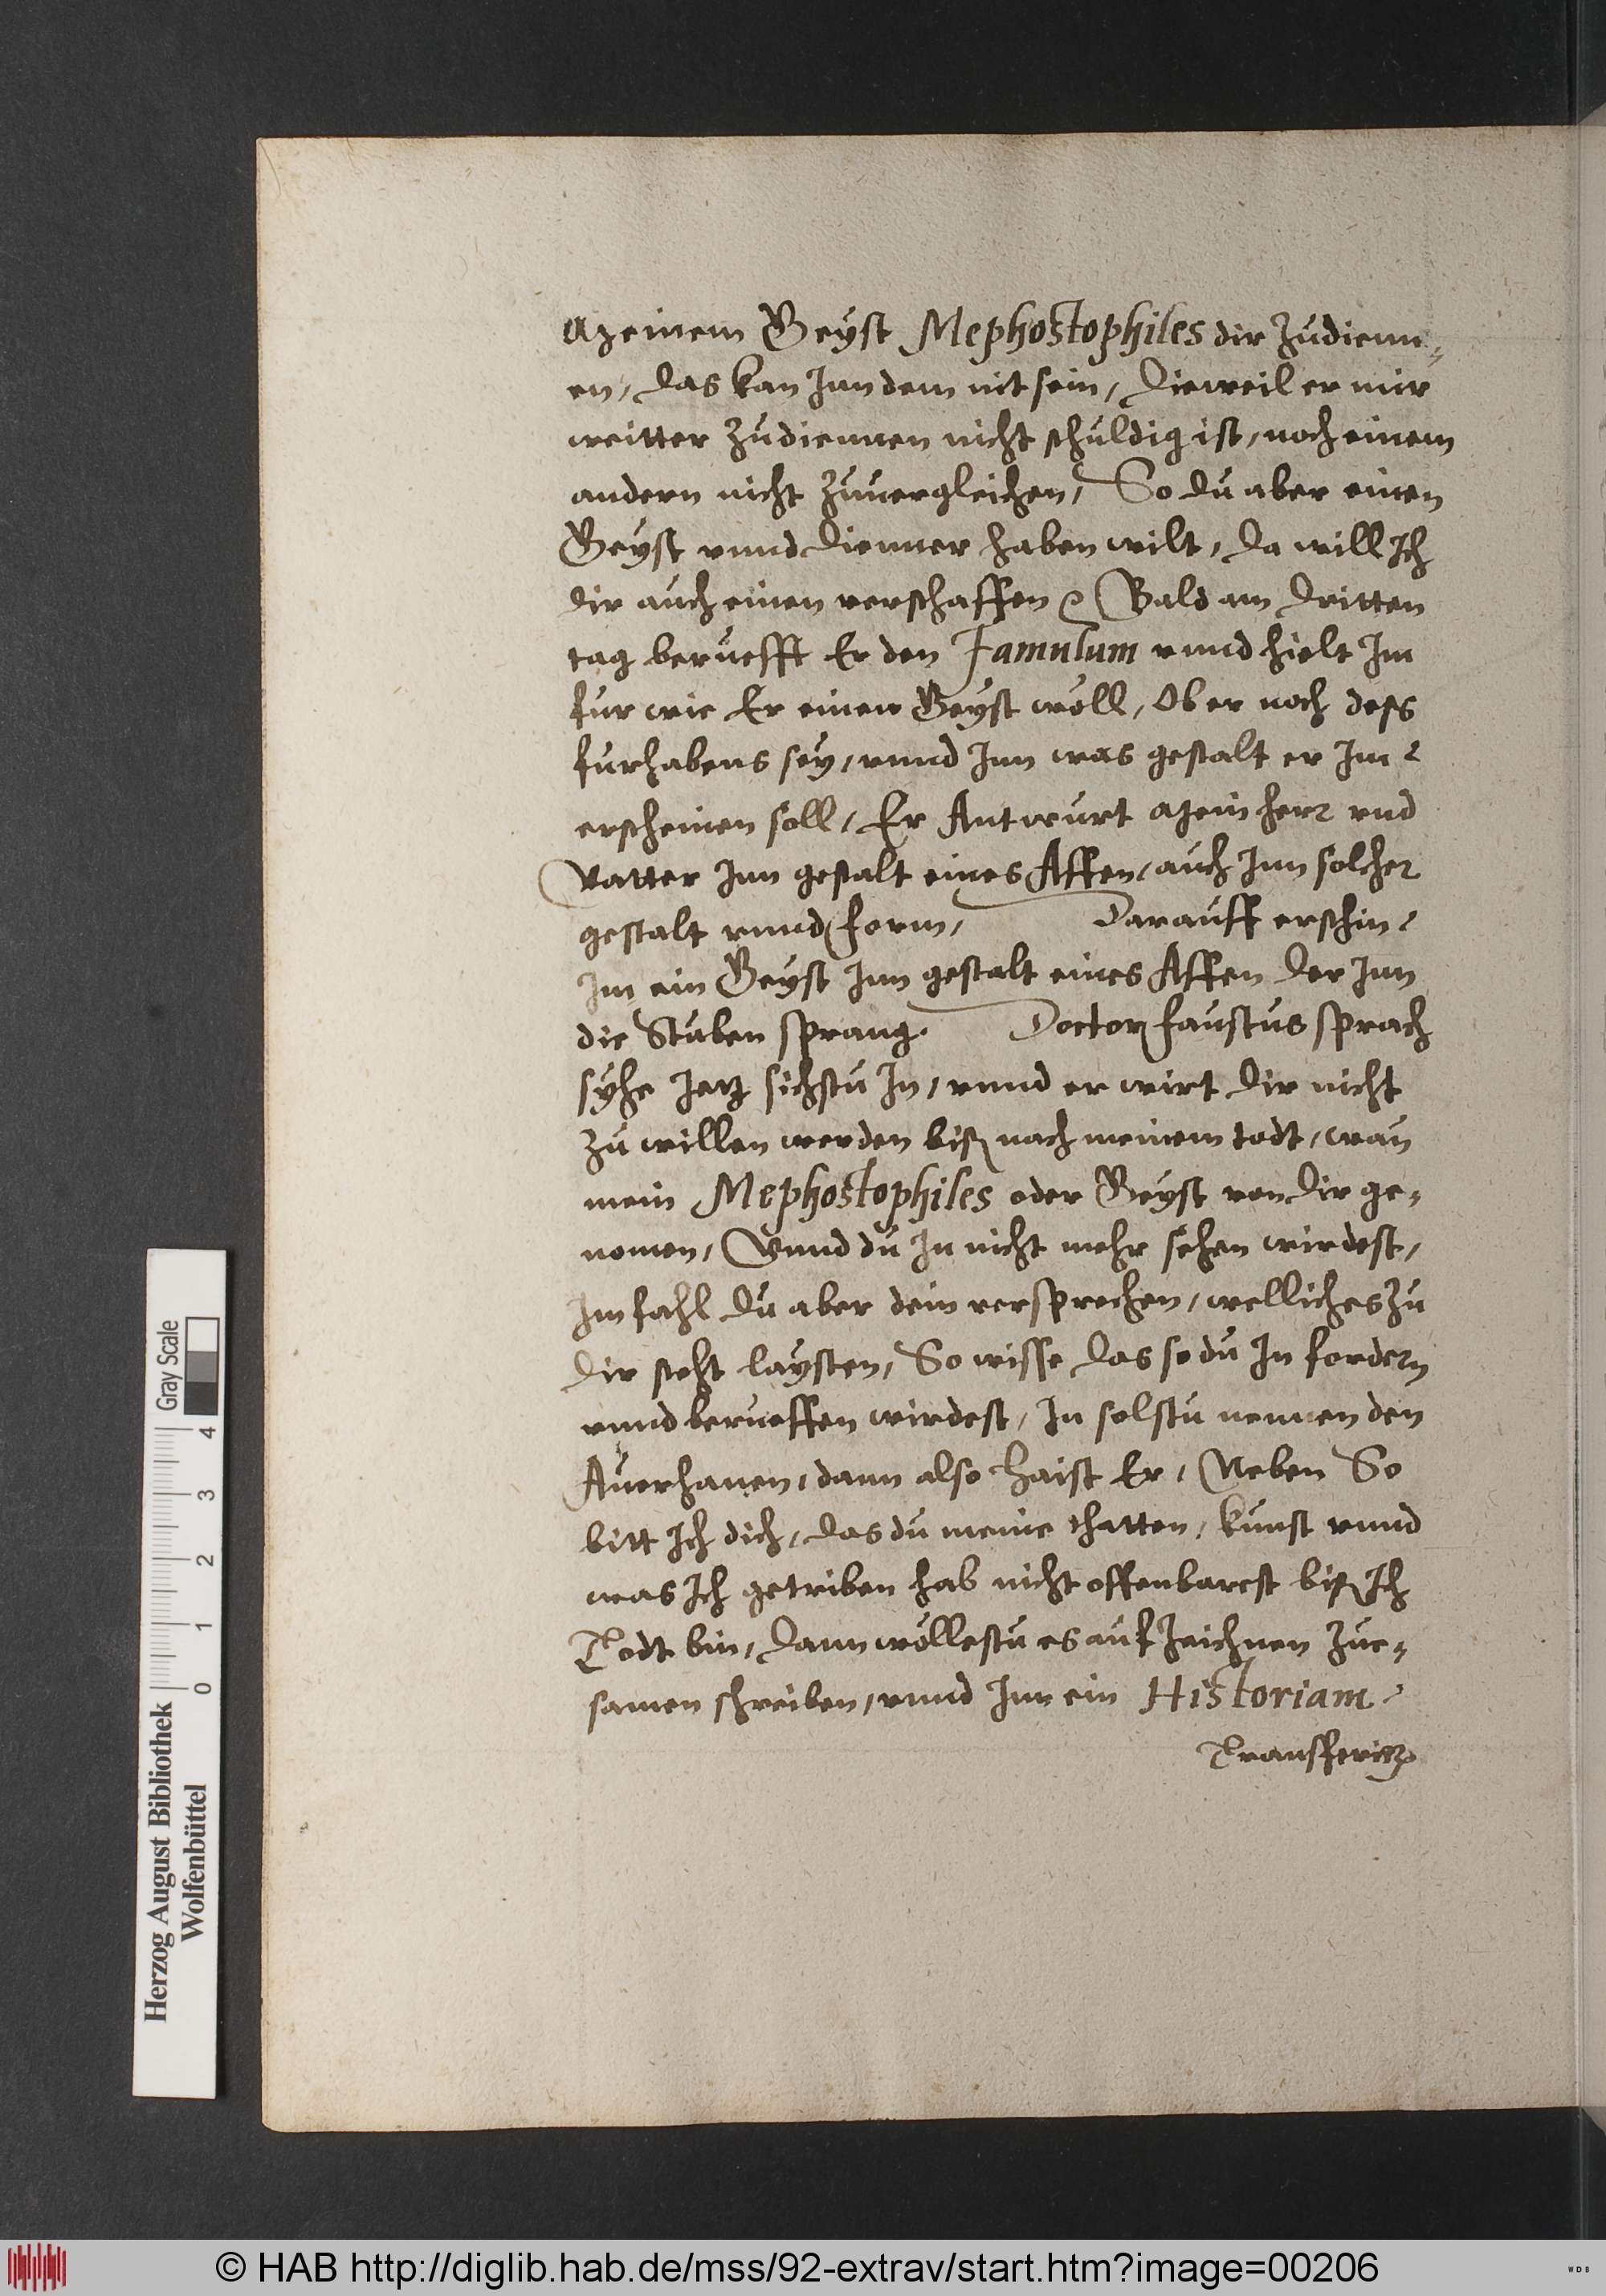 Meinem Geyst Mephostophiles dir Zudienn„
en, das kan Jnn dem nit sein, Dieweil er mir
weitter Zudiennen nicht schuldig ist, noch einem
andern nicht Zuuergleichen, So du aber einen
Geyst vnnd Dienner haben wilt, da will Jch
dir auch einen verschaffen Bald am dritten
tag berüefft Er den Famulum vnnd hielt Jm
für wie Er einen Geyst wöll, Ob er noch dess
fürhabens sey, vnnd Jnn was gestalt er Jm
erscheinen soll, Er Antwurt Mein herr vnd
Vatter Jnn gestalt eines Affen, auch Jnn solcher
gestalt vnnd form, Darauff erschin
Jm ein Geyst Jnn gestalt eines Affen der Jnn
die Stuben sprang. Doctor faustus sprach
syhe Jetz sichstu Jn, vnnd er wirt dir nicht
zu willen werden biß nach meinem todt, wan
mein Mephostophiles oder Geyst von dir ge„
nomen, Vnnd du Jn nicht mehr sehen wirdest,
Jm fahl du aber dein versprechen, welliches Zu
dir steht laysten, So wisse das so du Jn fordern
vnnd berueffen wirdest, Jn solstu nennen den
Auerhanen, dann also haist Er, Neben So
bitt Jch dich, das du meine thatten, kunst vnnd
was Jch getriben hab nicht offenbarest biß Jch
Todt bin, dann wöllestu es auf Zeichnen Zue„
samen schreiben, vnnd Jnn ein Historiam
Transferirn
Herzog August Bibliothek
Wolfenbüttel
Gray Scale
0 1 2 3 4
© HAB http://diglib.hab.de/mss/92-extrav/start.htm?image=00206
WDB